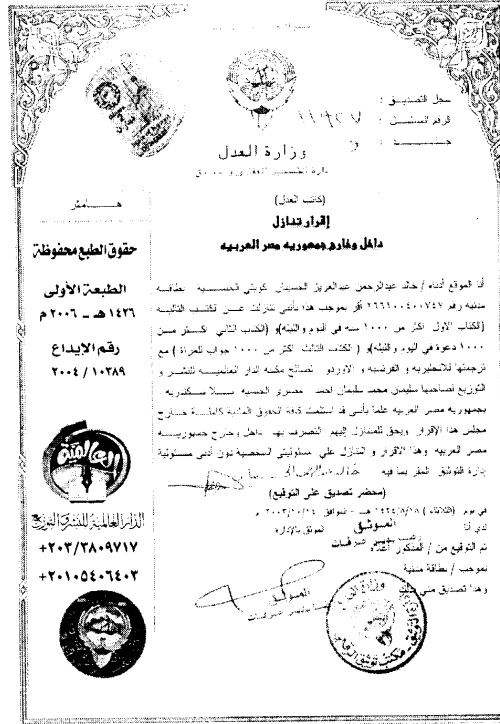 سجل التصديق :
الرقم المسلسل :
وزارة العدل
(كاتب العدل)
إقرار تنازل
داخل وخارج جمهوريه مصر العربيه
أنا الموقع أدناه / خالد عبدالرحمن عبدالعزيز الحسينان كويتي الجنسيه بطاقه
مدنيه رقم ٢٦٦١٠٠٤٠٠٧٤٧ أقر بموجب هذا بأنني تنازلت عن الكتب التاليه
(الكتاب الاول اكثر من ١٠٠٠ سنه في اليوم والليله) و (الكتاب الثاني اكثر من
١٠٠٠ دعوة في اليوم والليله) و ( الكتاب الثالث اكثر من ١٠٠٠ جواب للمرأة ) مع
ترجمتها للانجليزيه و الفرنسيه و الاوردو لصالح مكتبه الدار العالميه للنشر و
التوزيع لصاحبها سليمان محمد سليمان احمد مصري الجنسيه سكندريه
بجمهوريه مصر العربيه علما بأني قد استلمت كافة الحقوق المادية كاملة خارج
مجلس هذا الإقرار ويحق للمتنازل إليهم التصرف بها داخل وخارج جمهوريه
مصر العربيه وهذا الاقرار و التنازل علي مسئوليتي الشخصية دون أدنى مسئولية
إدارة التوثيق المقر بما فيه
(محضر تصديق على التوقيع)
في يوم (الثلاثاء) ١٤٢٤/٨/١٨ هـ - الموافق ٢٠٠٣/١٠/١٤ م
لدي أنا الموثق الموثق بالإدارة
تم التوقيع من / المذكور أعلاه
بموجب / بطاقة مدنية
وهذا تصديق مني بذلك
الموثق
هامش
حقوق الطبع محفوظة
الطبعة الأولى
١٤٢٦ هـ - ٢٠٠٦ م
رقم الإيداع
٢٠٠٤ / ١٠٣٨٩
العالمية
الدار العالمية للنشر والتوزيع
+٢٠٣/٣٨٠٩٧١٧
+٢٠١٠٥٤٠٦٤٠٣